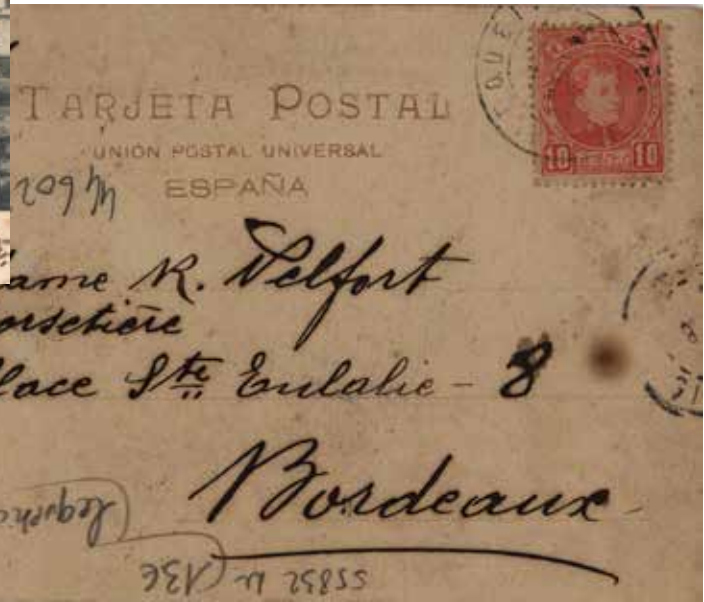 TARJETA POSTAL
UNIÓN POSTAL UNIVERSAL
ESPAÑA
10 10
ame R. Delfort
orsetière
lace Ste Eulalie - 8
Bordeaux
55832 13€